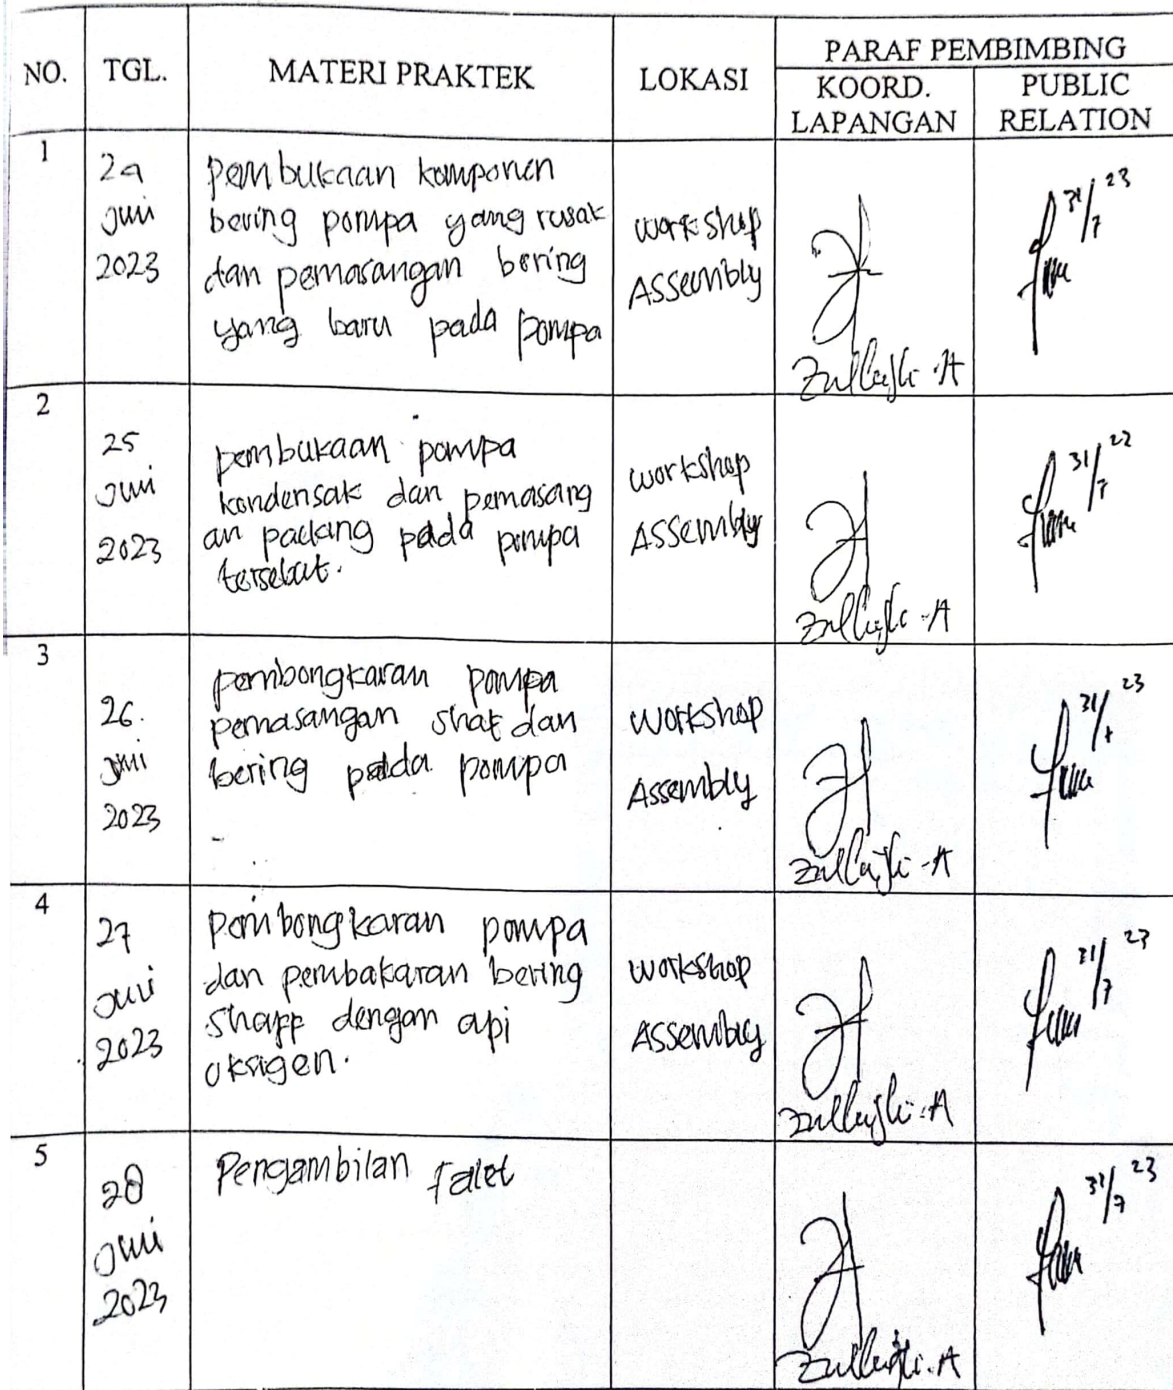 NO. TGL. MATERI PRAKTEK LOKASI PARAF PEMBIMBING
KOORD. LAPANGAN PUBLIC RELATION
1
24 Juni 2023
pembukaan komponen
bering pompa yang rusak
dan pemasangan bering
yang baru pada pompa
workshop
Assembly
31/7 23
2
25 Juni 2023
pembukaan pompa
kondensak dan pemasang
an packing pada pompa
tersebut.
workshop
Assembly
31/7
3
26. Juni 2023
pembongkaran pompa
pemasangan shat dan
bering pada pompa
workshop
Assembly
31/7 23
4
27 Juni 2023
pembongkaran pompa
dan pembakaran bering
shapp dengan api
oksigen.
workshop
Assembly
31/7 23
5
28 Juni 2023
Pengambilan falet
31/7 23